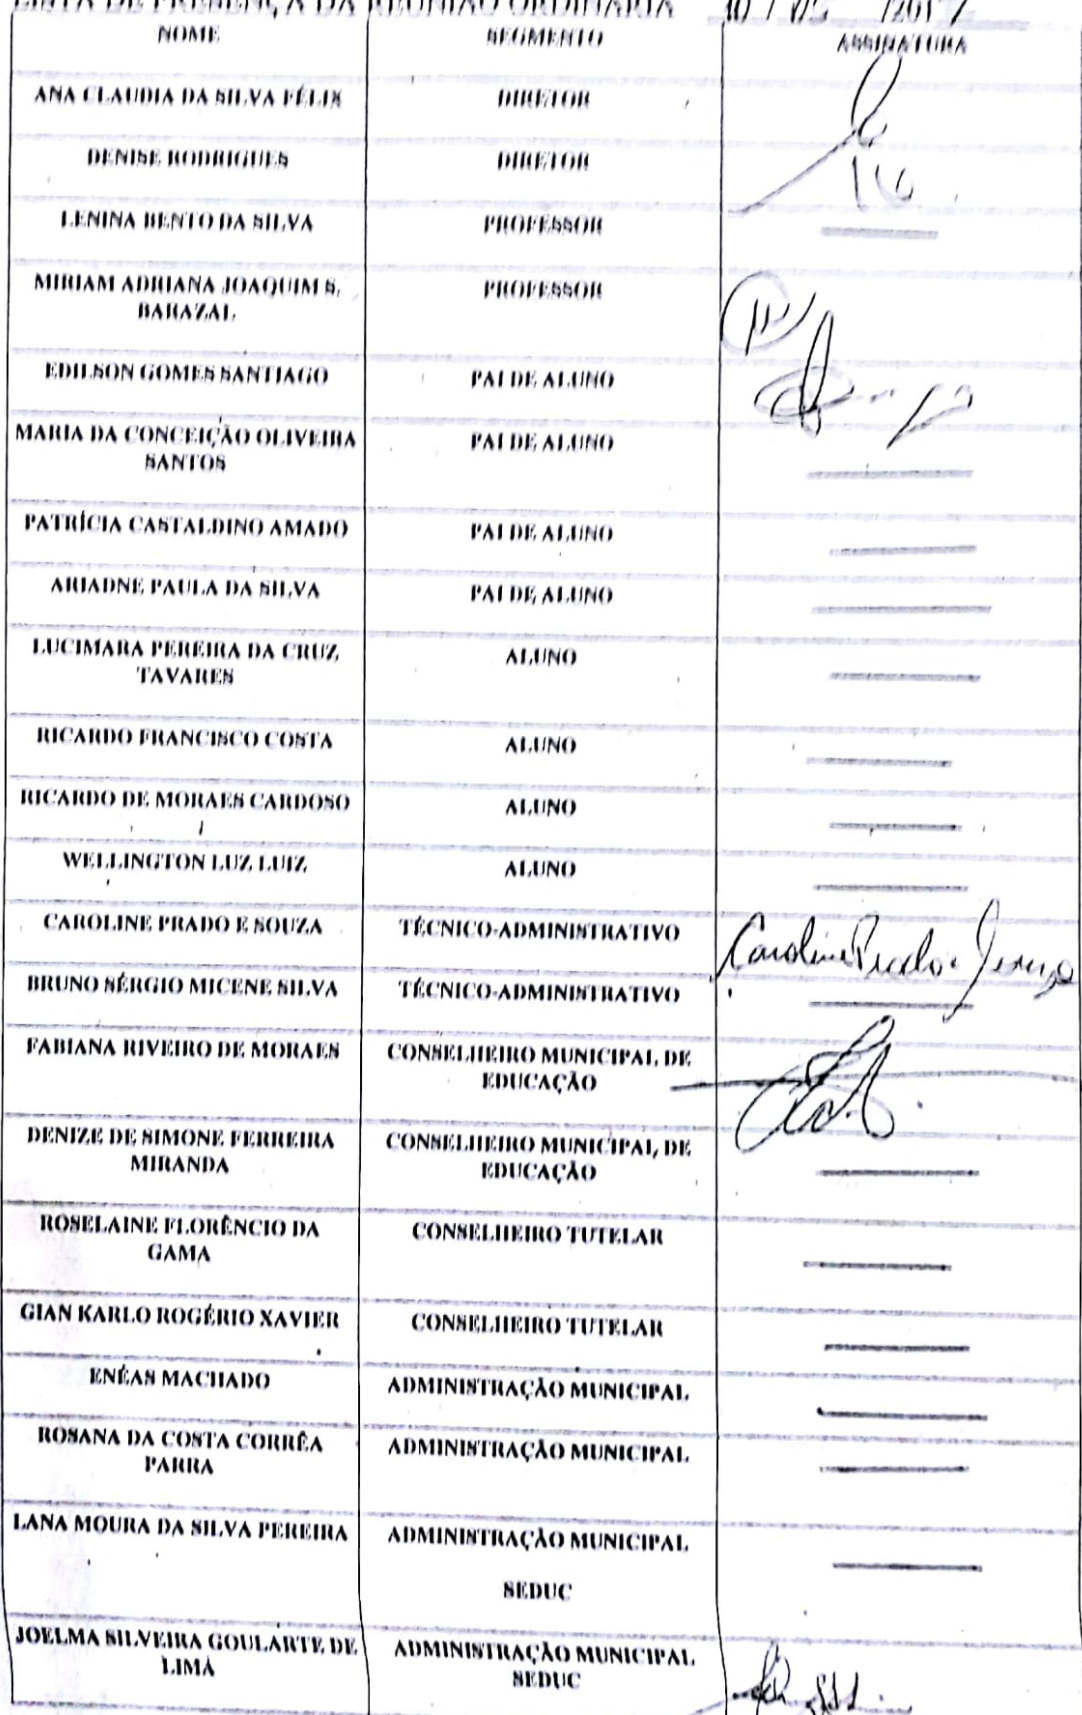 LISTA DE PRESENÇA DA REUNIÃO ORDINÁRIA 10 / 05 /2017
NOME SEGMENTO ASSINATURA
ANA CLAUDIA DA SILVA FÉLIX DIRETOR
DENISE RODRIGUES DIRETOR
LENINA BENTO DA SILVA PROFESSOR
MIRIAM ADRIANA JOAQUIM S. PROFESSOR
BARAZAL
EDILSON GOMES SANTIAGO PAI DE ALUNO
MARIA DA CONCEIÇÃO OLIVEIRA PAI DE ALUNO
SANTOS
PATRÍCIA CASTALDINO AMADO PAI DE ALUNO
ARIADNE PAULA DA SILVA PAI DE ALUNO
LUCIMARA PEREIRA DA CRUZ ALUNO
TAVARES
RICARDO FRANCISCO COSTA ALUNO
RICARDO DE MORAES CARDOSO ALUNO
WELLINGTON LUZ LUIZ ALUNO
CAROLINE PRADO E SOUZA TÉCNICO-ADMINISTRATIVO Caroline Prado e Souza
BRUNO SÉRGIO MICENE SILVA TÉCNICO-ADMINISTRATIVO
FABIANA RIVEIRO DE MORAES CONSELHEIRO MUNICIPAL DE
EDUCAÇÃO
DENIZE DE SIMONE FERREIRA CONSELHEIRO MUNICIPAL DE
MIRANDA EDUCAÇÃO
ROSELAINE FLORÊNCIO DA CONSELHEIRO TUTELAR
GAMA
GIAN KARLO ROGÉRIO XAVIER CONSELHEIRO TUTELAR
ENÉAS MACHADO ADMINISTRAÇÃO MUNICIPAL
ROSANA DA COSTA CORRÊA ADMINISTRAÇÃO MUNICIPAL
PARRA
LANA MOURA DA SILVA PEREIRA ADMINISTRAÇÃO MUNICIPAL
SEDUC
JOELMA SILVEIRA GOULARTE DE ADMINISTRAÇÃO MUNICIPAL
LIMA SEDUC